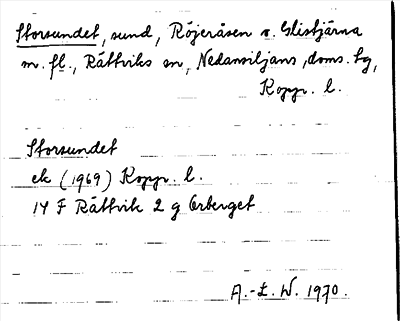 Storsundet, sund, Röjeråsen o. Glistjärna
m. fl., Rättviks sn, Nedansiljans, doms. lg,
Koppr. l.
Storsundet
ek (1969) Koppr. l.
14 F Rättvik 2 g Orberget
A.-L. W. 1970.